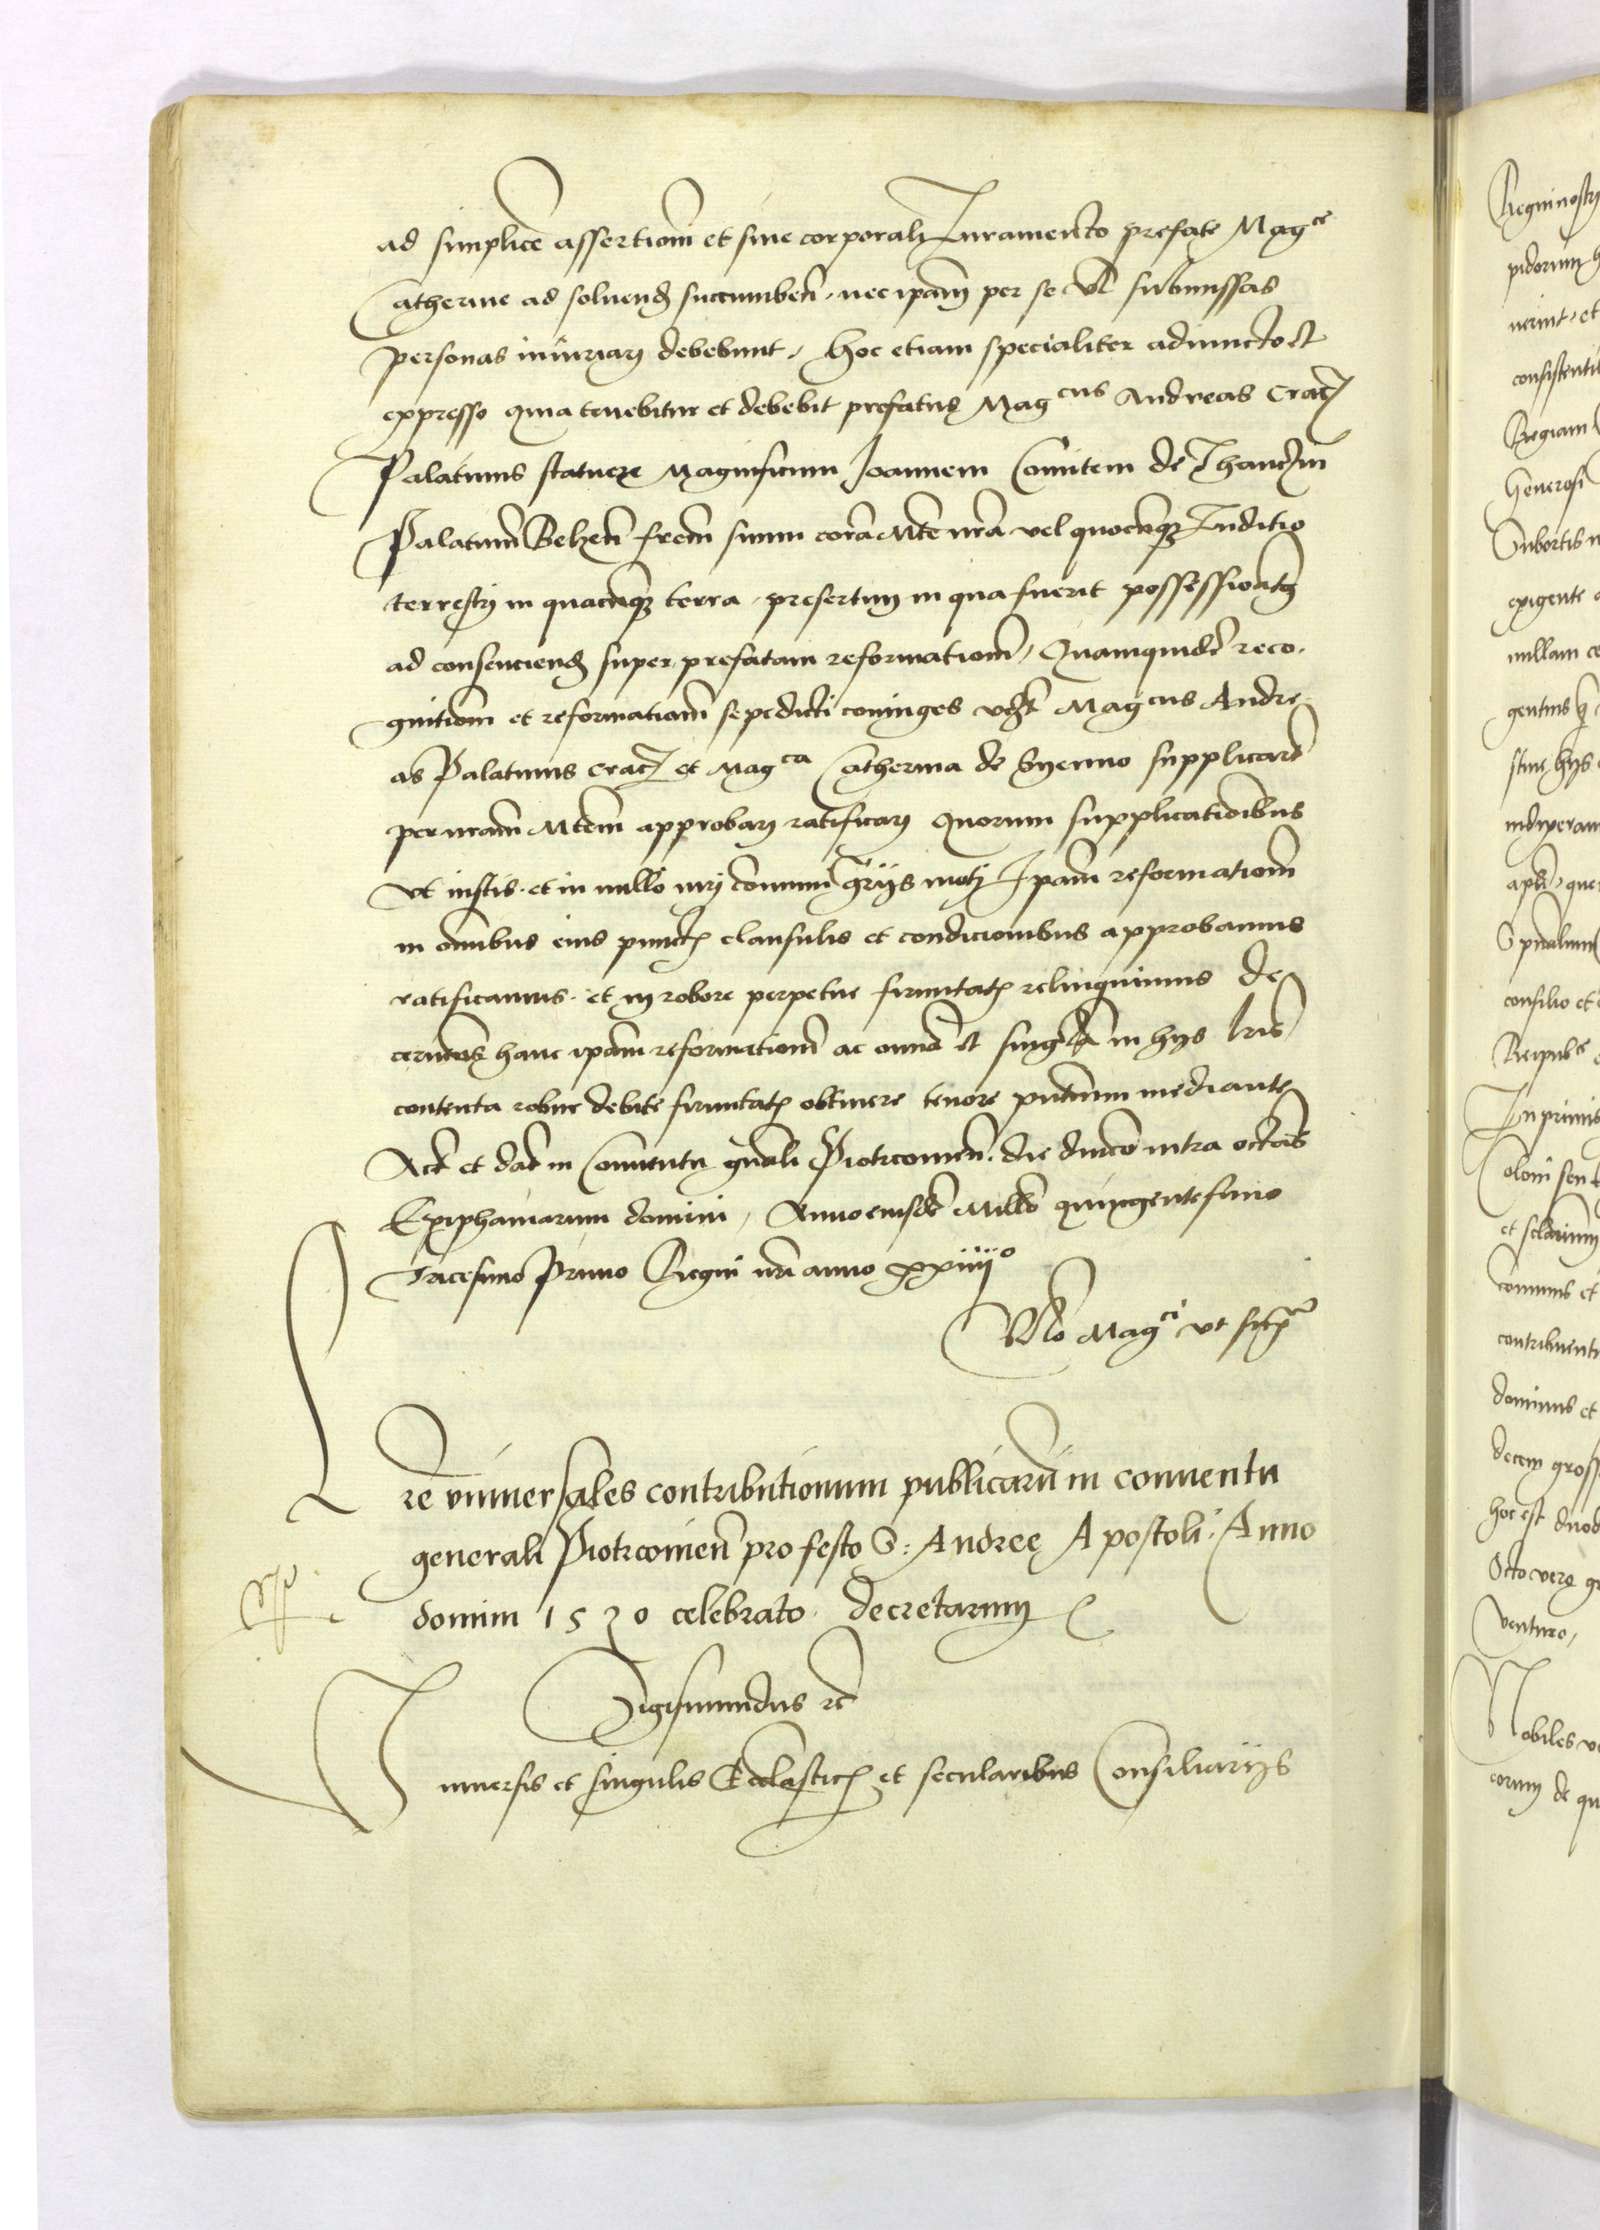 ad simplicē assertiom̄ et sine corporali Iuramento prefate Mag^ce
Catherine ad soluend succumben̄. nec ipam̄ per se vl submissas
personas iniuriari debebunt, hoc etiam specialiter adiuncto et
expresso quia tenebitur et debebit prefatus Mag^cus Andreas Crac
Palatinus statuere Magnificum Joannem Comitem de Thanczin
Palatinū Belzen̄ frem̄ suum corā Mte nr̄a vel quocūqz Iuditio
terrestri in quacūqz terra, presertim in qua fuerit possessionatus
ad consenciend super prefatam reformatiom̄, Quamquidē reco-
gnitiom̄ et reformatiom̄ sepedicti coniuges vcz̄ Mag^cus Andre-
as Palatinus Crac et Mag^ca Catherina de Synno supplicarūt
per nram̄ Mtem̄ approbari ratificari Quorum supplicationibus
vt iustis. et in nullo iuri com̄uni griis moti Ipam̄ reformatiom̄
in om̄ibus eius punctis clausulis et condicionibus approbamus
ratificamus. et in robore perpetue firmitatis relinquimus de
cernētes hanc ipam̄ reformatiom̄ ac omnia et singula in hijs lr̄is
contenta robur debite firmitatis obtinere tenore pn̄tium mediante
Act et dat in Conuentu gn̄ali Piotrcouien̄. die duīco intra octauas
Epiphaniarum domini, Anno eiusdē Millō quingentesimo
Tricesimo Primo Regni nr̄i anno xxiiii^o
Rlo Mag^ci vt supra
Lr̄e vniuersales contributionum publicarū in conuentu
generali Piotrcouien̄ pro festo S: Andreę Apostoli Anno
domini 1530 celebrato. decretarum
Sigismundus rc̄
Vniuersis et singulis Ecclasticis et secularibus Consiliarijs
Regni nostri
pidorum
uerint, et
consistenti
Regiam
Generosi
exigente
nullam
gentius
indixeram
consilio et
Reipub^ce
In primis
Coloni seu
contribuent
dominus et
decem gross
hoc est duod
Octo vero
venturo,
Nobiles
eorum de qu